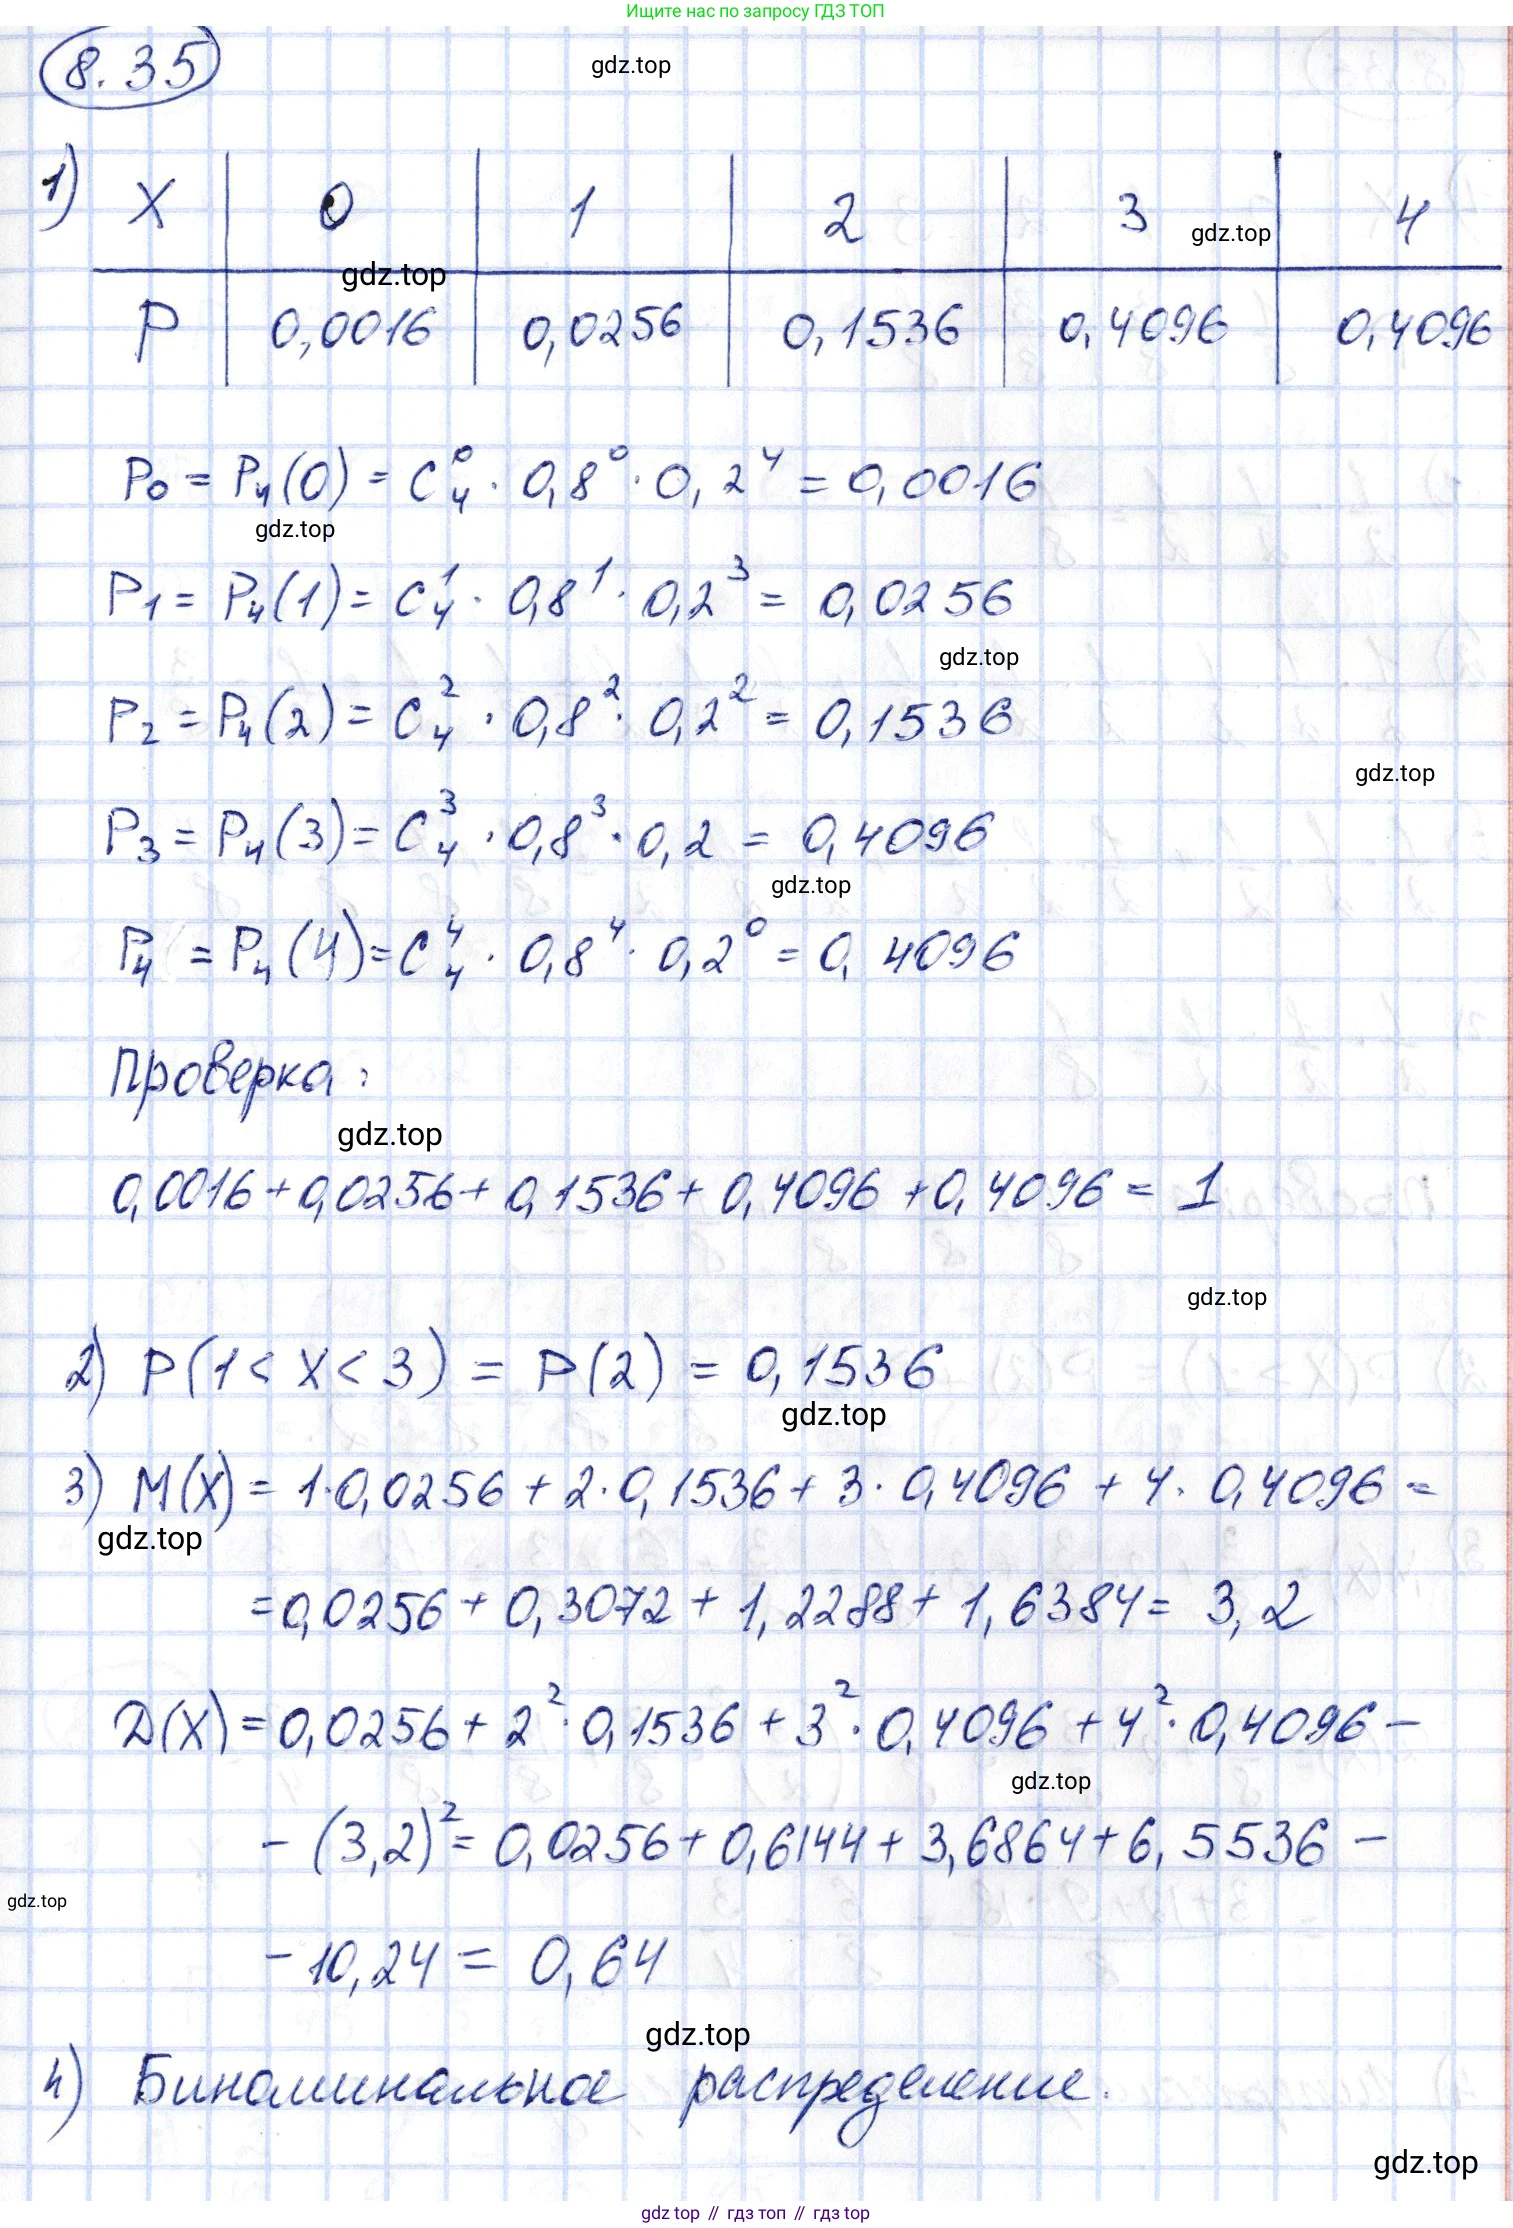 Ищите нас по запросу ГДЗ ТОП
8.35
gdz.top
1) X | 0 | 1 | 2 | 3 | 4
gdz.top
gdz.top
P | 0,0016 | 0,0256 | 0,1536 | 0,4096 | 0,4096
P₀ = P₄(0) = C₄⁰ · 0,8⁰ · 0,2⁴ = 0,0016
gdz.top
P₁ = P₄(1) = C₄¹ · 0,8¹ · 0,2³ = 0,0256
gdz.top
P₂ = P₄(2) = C₄² · 0,8² · 0,2² = 0,1536
gdz.top
P₃ = P₄(3) = C₄³ · 0,8³ · 0,2 = 0,4096
gdz.top
P₄ = P₄(4) = C₄⁴ · 0,8⁴ · 0,2⁰ = 0,4096
Проверка:
gdz.top
0,0016 + 0,0256 + 0,1536 + 0,4096 + 0,4096 = 1
gdz.top
2) P(1 < X < 3) = P(2) = 0,1536
gdz.top
3) M(X) = 1·0,0256 + 2·0,1536 + 3·0,4096 + 4·0,4096 =
gdz.top
= 0,0256 + 0,3072 + 1,2288 + 1,6384 = 3,2
D(X) = 0,0256 + 2²·0,1536 + 3²·0,4096 + 4²·0,4096 -
gdz.top
- (3,2)² = 0,0256 + 0,6144 + 3,6864 + 6,5536 -
gdz.top
- 10,24 = 0,64
gdz.top
4) Биноминальное распределение.
gdz.top
gdz top // гдз топ // гдз top